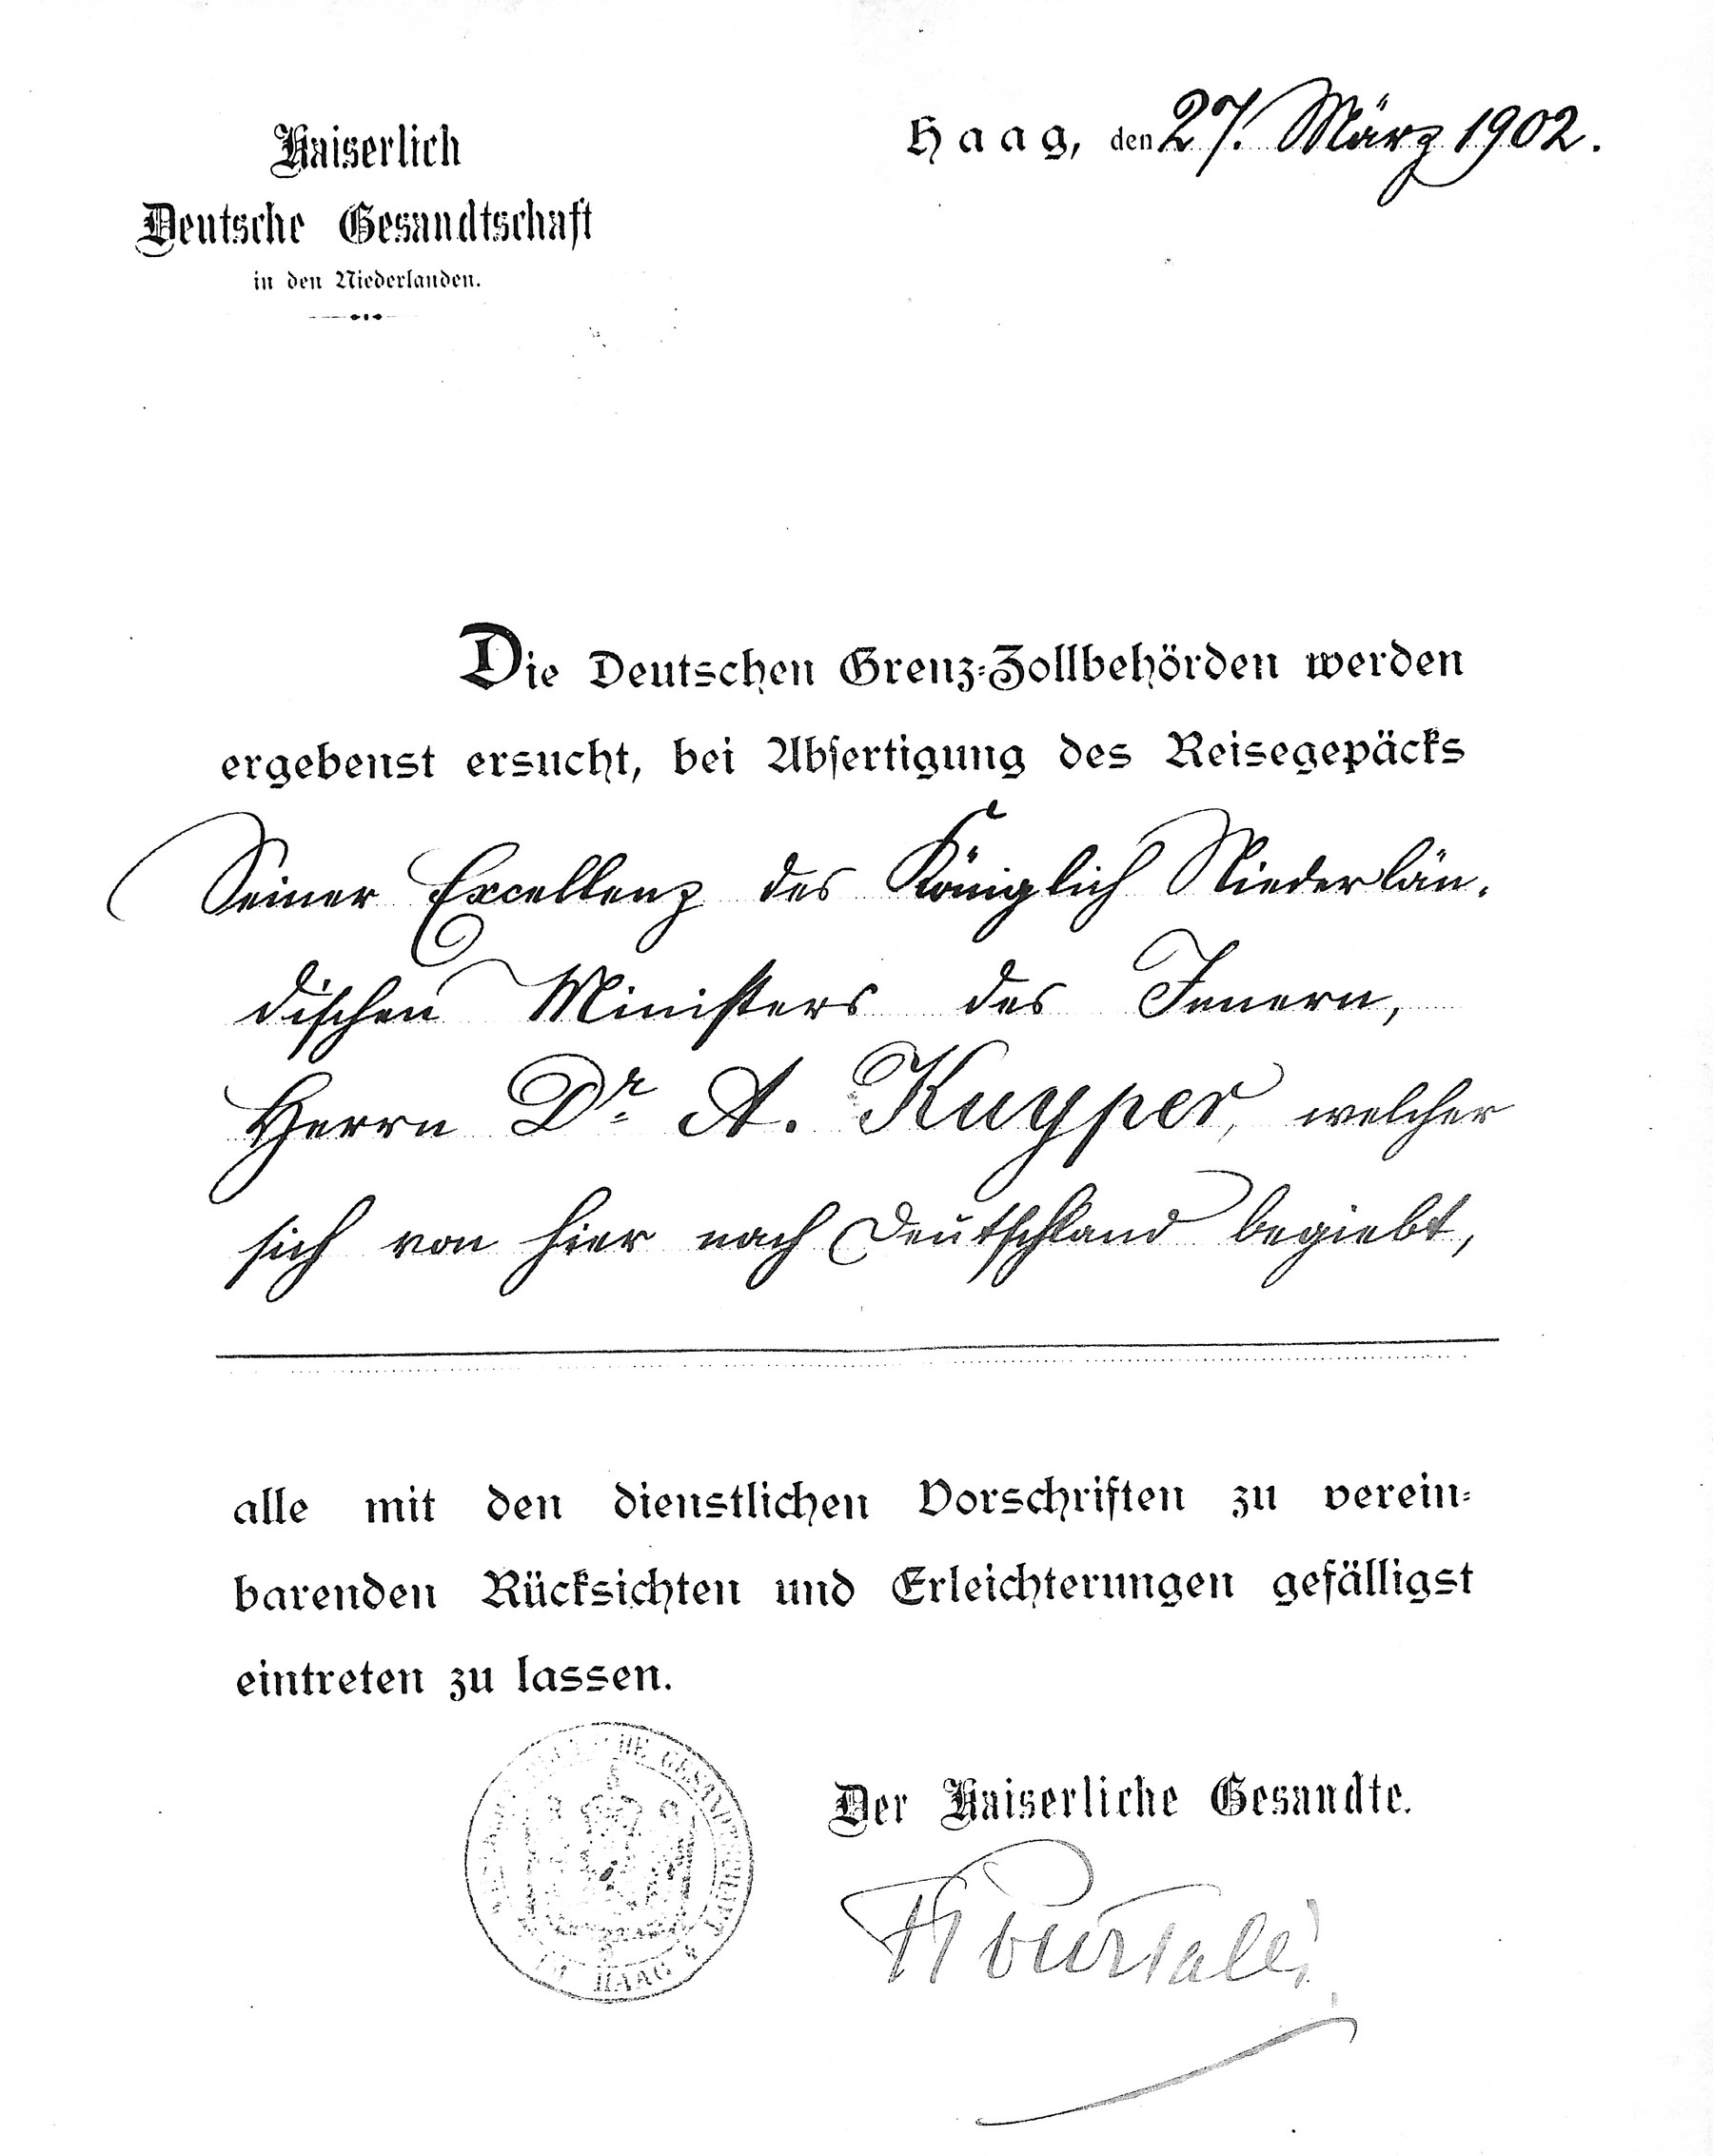 Kaiserlich
Deutsche Gesandtschaft
in den Niederlanden.
Haag, den 27. März 1902.
Die Deutschen Grenz-Zollbehörden werden
ergebenst ersucht, bei Abfertigung des Reisegepäcks
Seiner Excellenz des Königlich Niederlän-
dischen Ministers des Innern,
Herrn Dr. A. Kuyper, welcher
sich von hier nach Deutschland begiebt,
alle mit den dienstlichen Vorschriften zu verein-
barenden Rücksichten und Erleichterungen gefälligst
eintreten zu lassen.
Der Kaiserliche Gesandte.
GESANDTSCHAFT
HAAG
FPourtalès